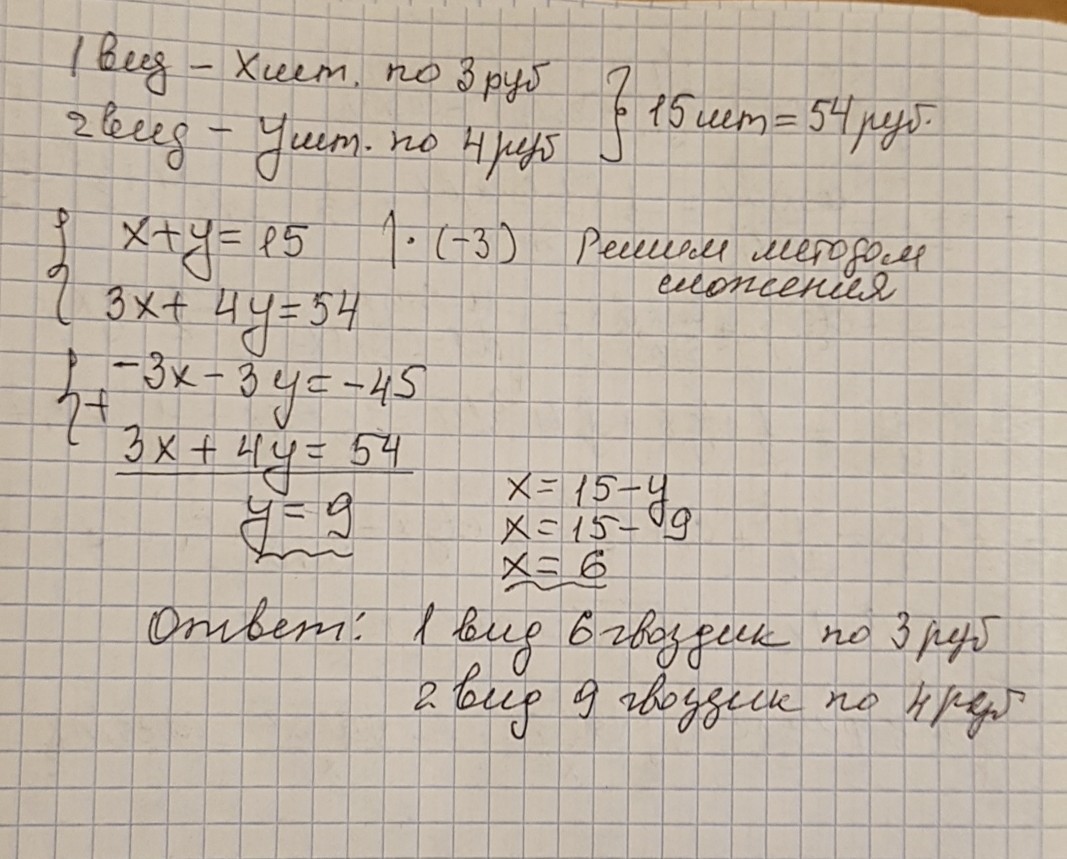 1 вид – x шт. по 3 руб
2 вид – y шт. по 4 руб } 15 шт = 54 руб.
{ x+y=15 |·(-3) Решим методом
сложения
3x+4y=54
{ + -3x-3y=-45
3x+4y=54
y=9
x=15-y
x=15-9
x=6
Ответ: 1 вид 6 гвоздик по 3 руб
2 вид 9 гвоздик по 4 руб